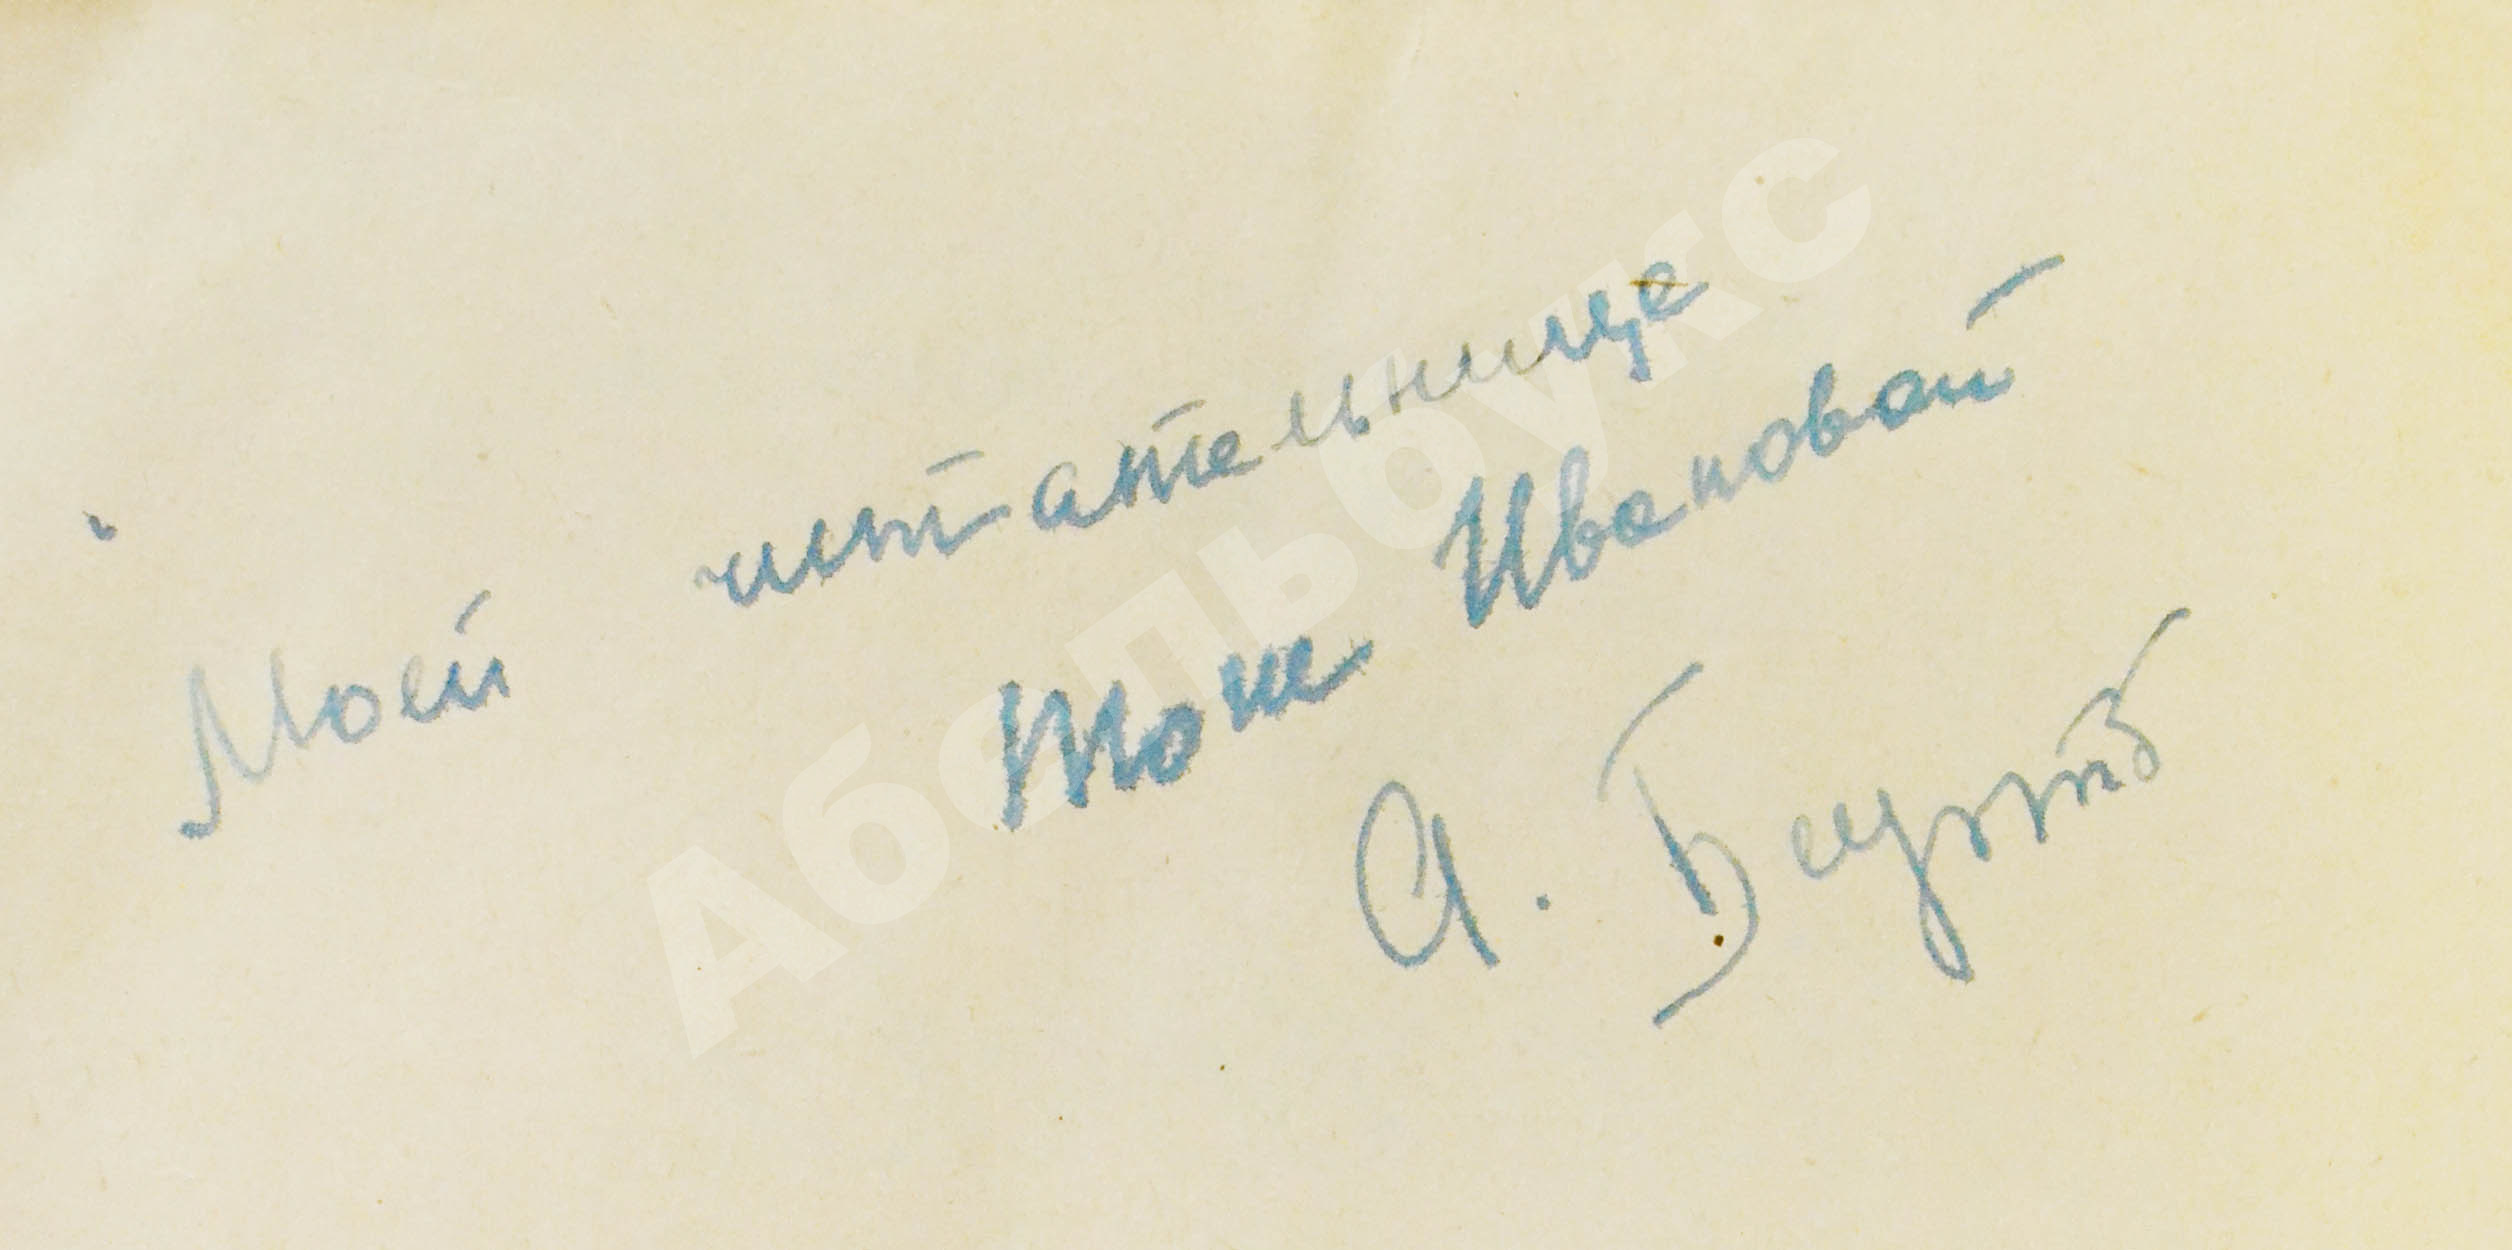 Моей читательнице
Тоне Ивановой
А. Барто
Абельбукс